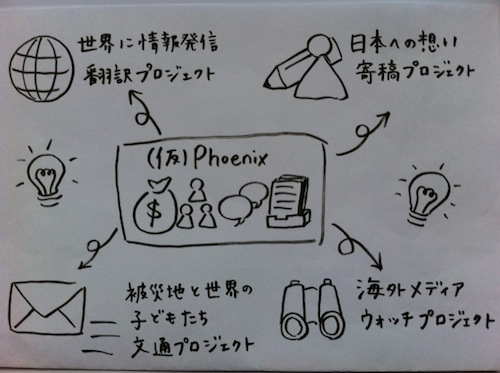 世界に情報発信
翻訳プロジェクト
日本への想い
寄稿プロジェクト
(仮)Phoenix
$
被災地と世界の
子どもたち
文通プロジェクト
海外メディア
ウォッチプロジェクト